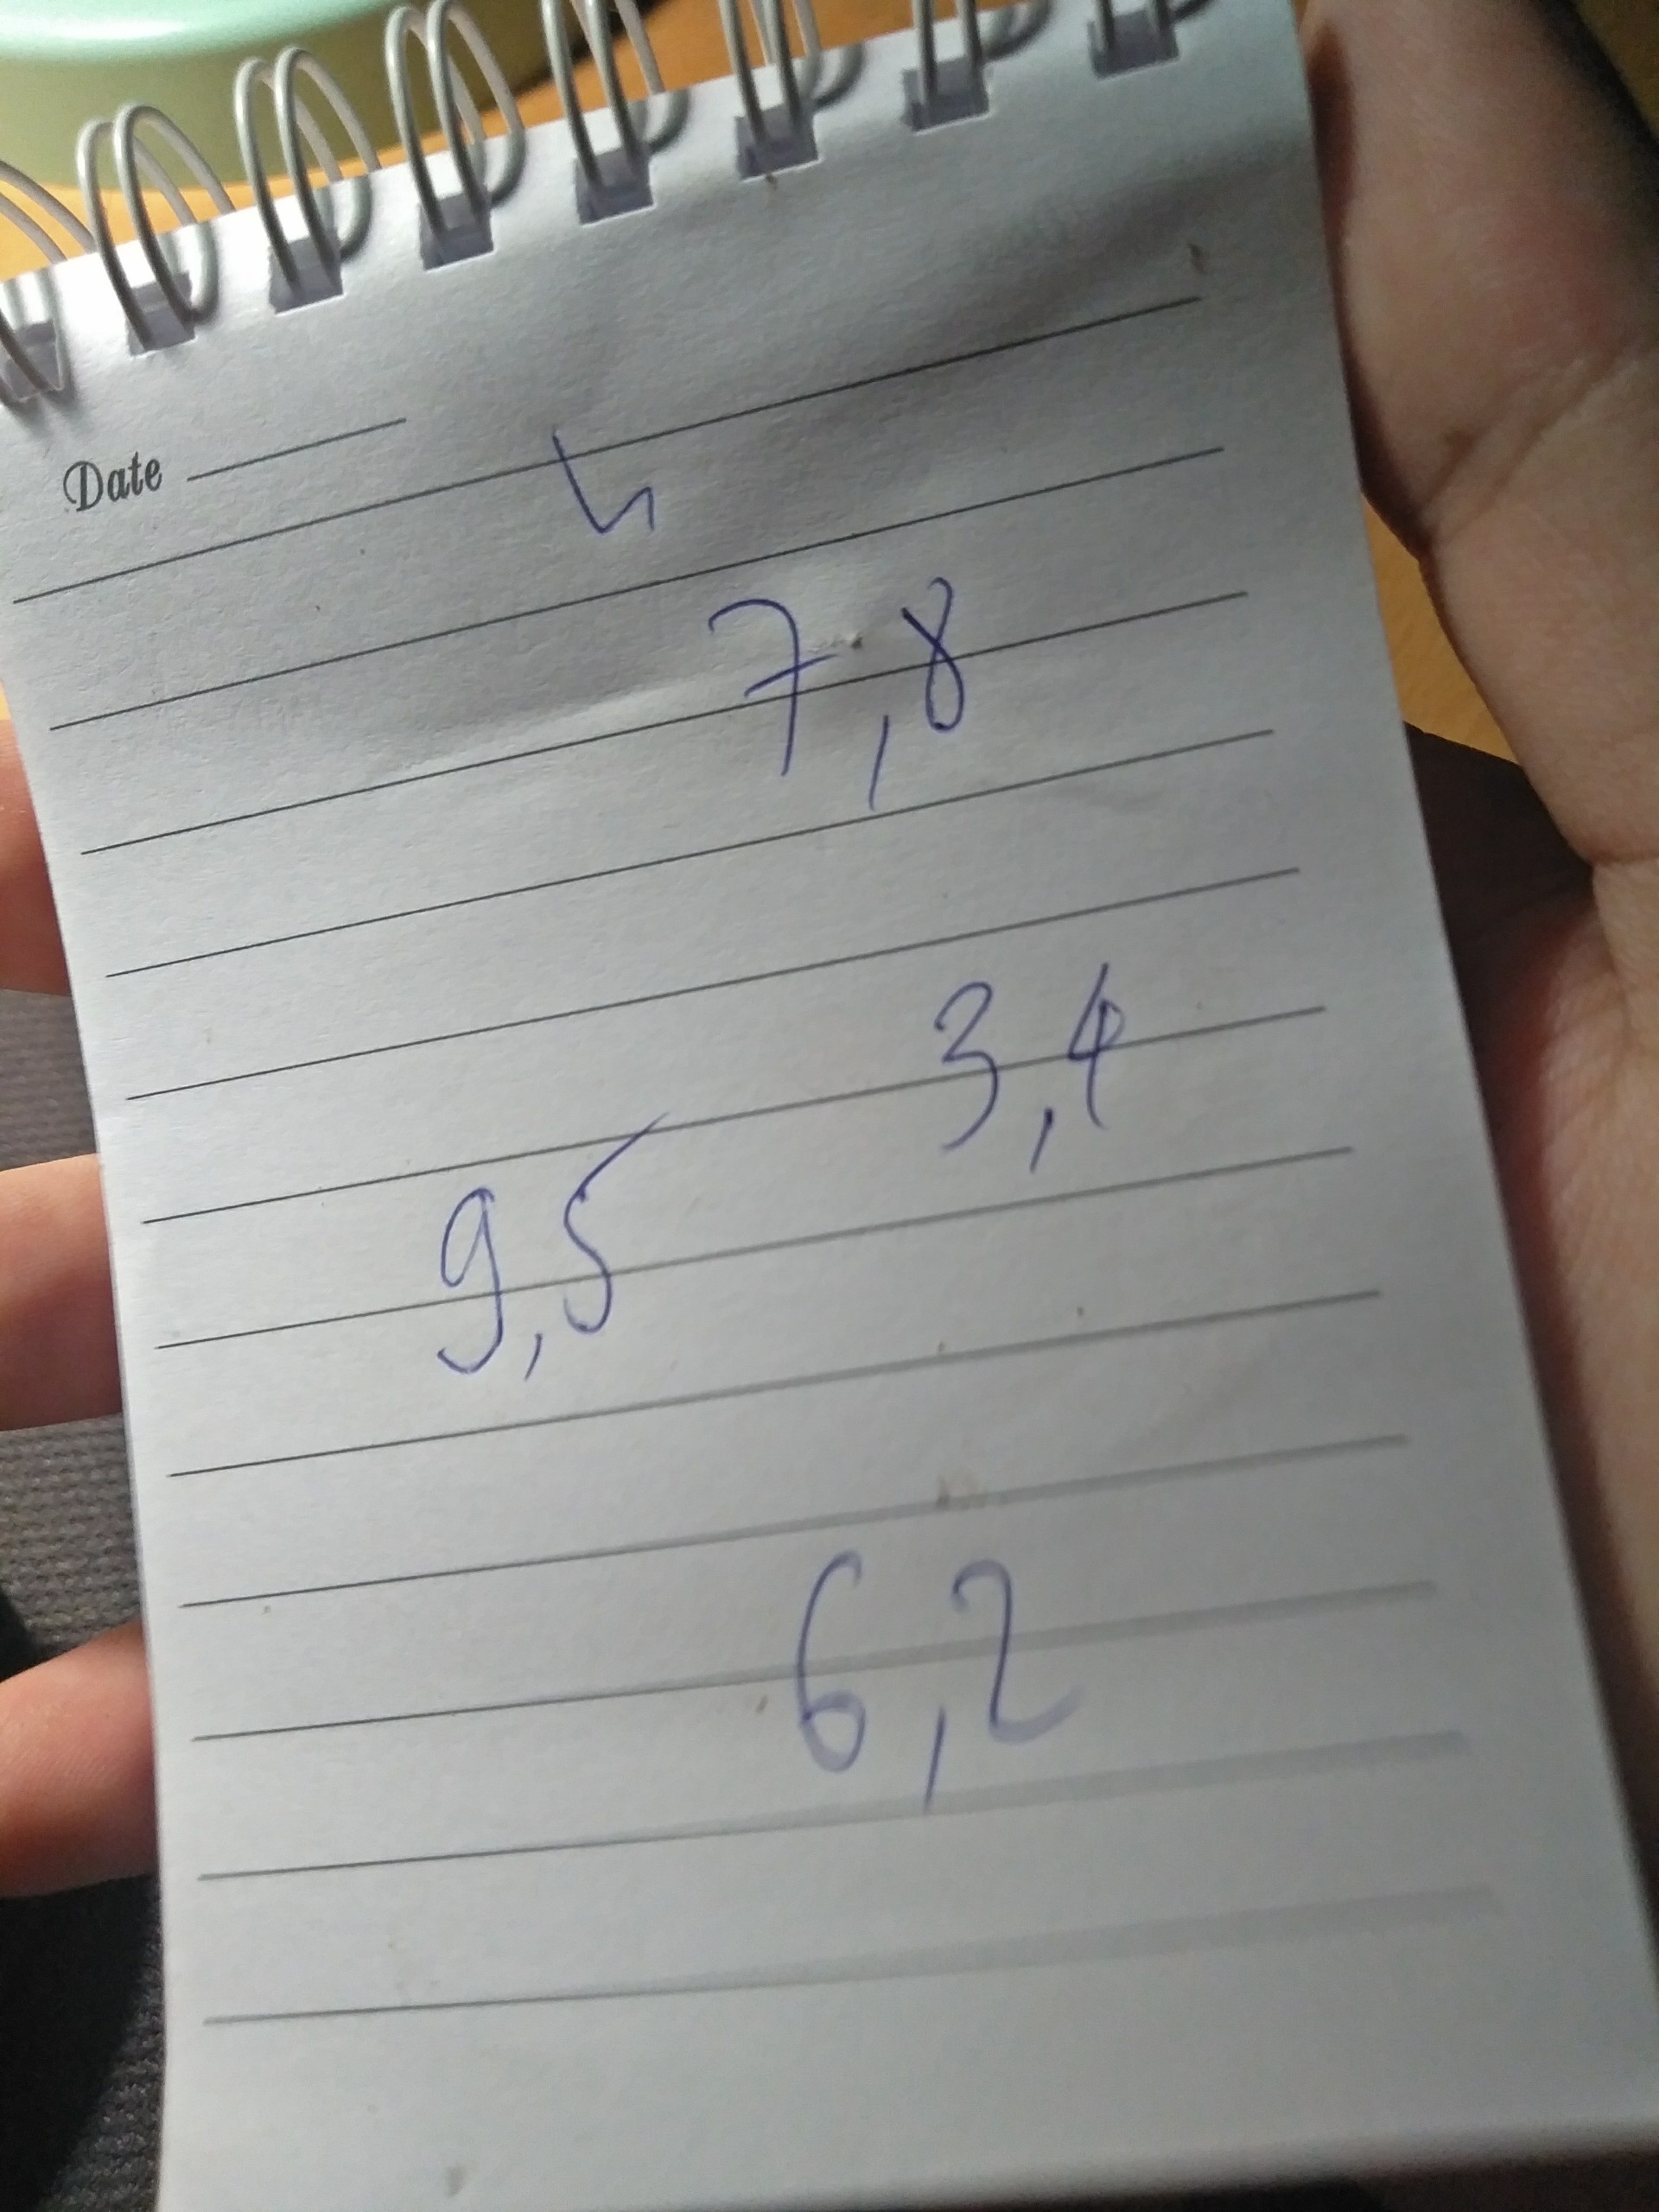 Date
7,8
3,4
9,5
6,2